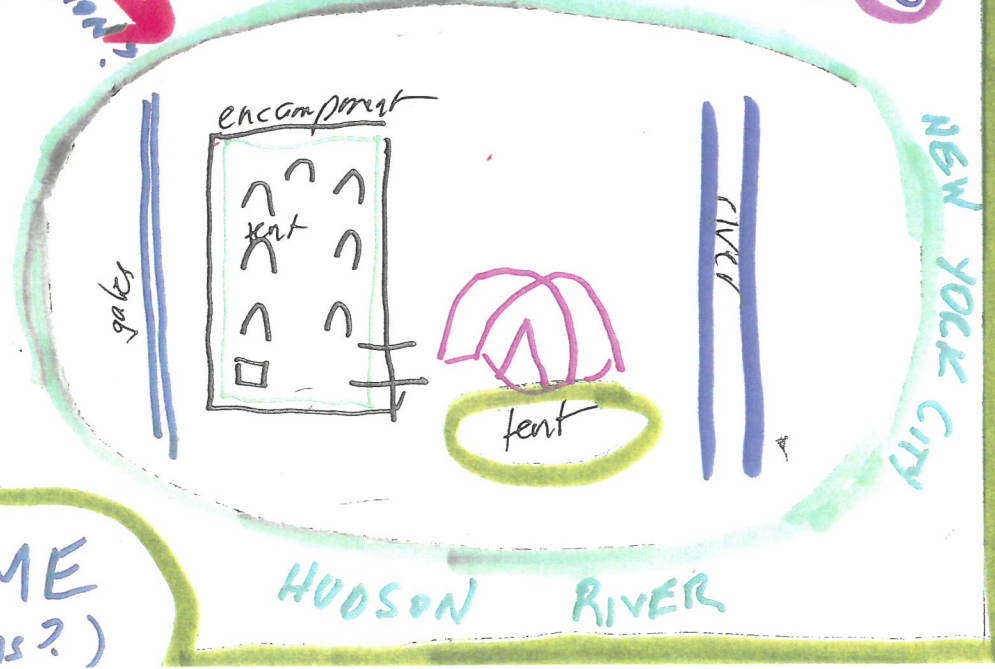 encampment
tent
gates
river
tent
NEW YORK CITY
HUDSON RIVER
ME
s?)